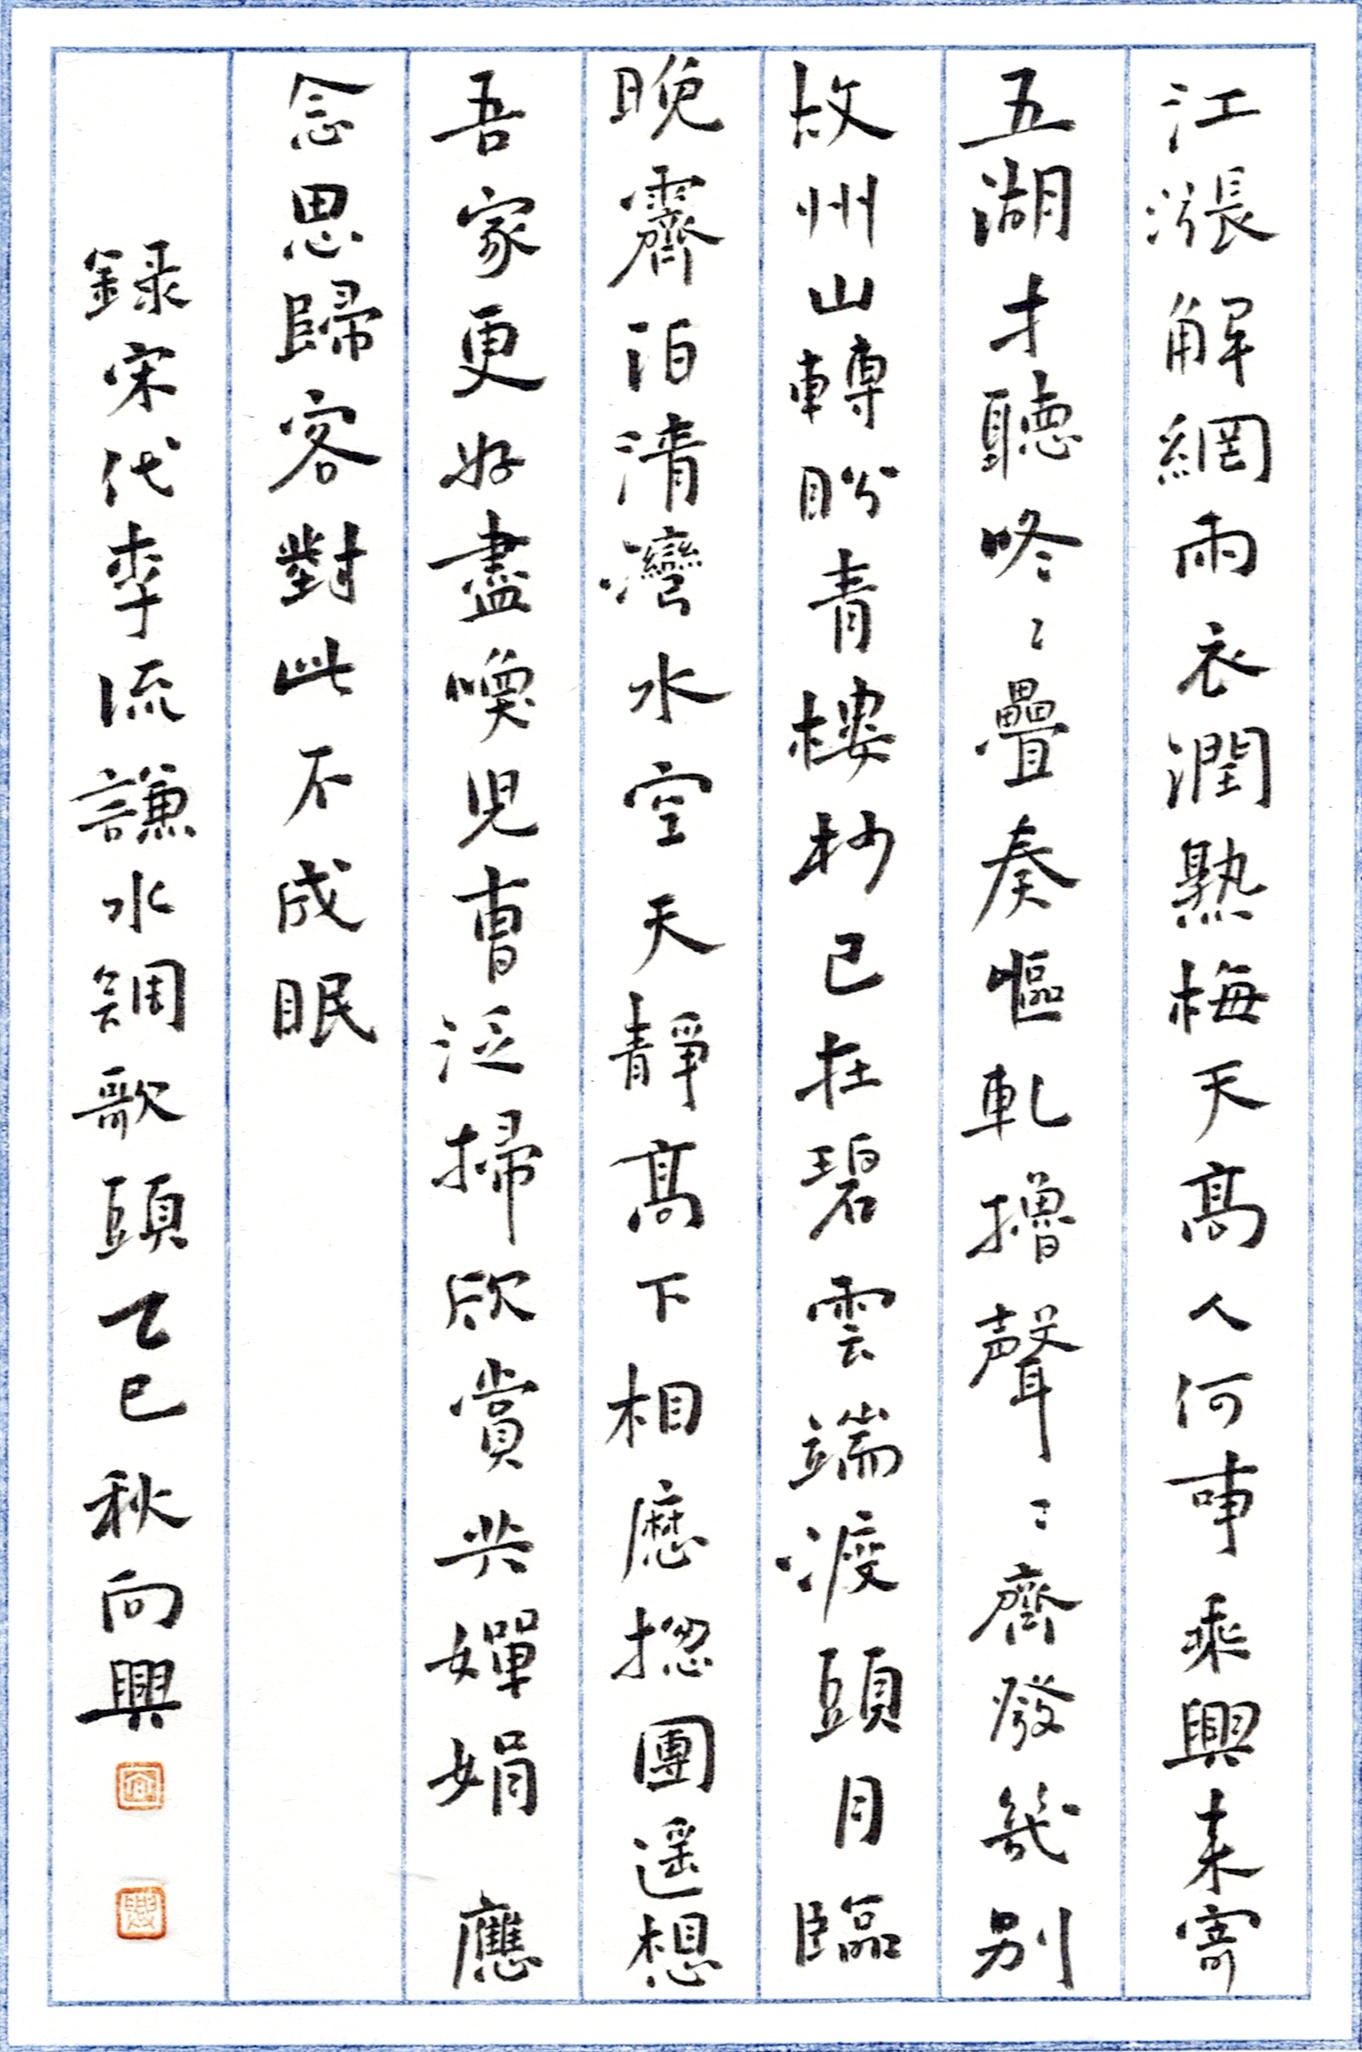 江漲解網雨衣潤熟梅天高人何事乘興来寄
五湖才聽咚〻疊奏嘔軋擼聲〻齊發幾別
故州山轉盼青樓杪已在碧雲端渡頭月臨
晚霽泊清灣水空天靜高下相應揔團遥想
吾家更好盡喚児曹泛掃欣賞共嬋娟應
念思歸客對此不成眠
録宋代李流謙水調歌頭乙巳秋向興